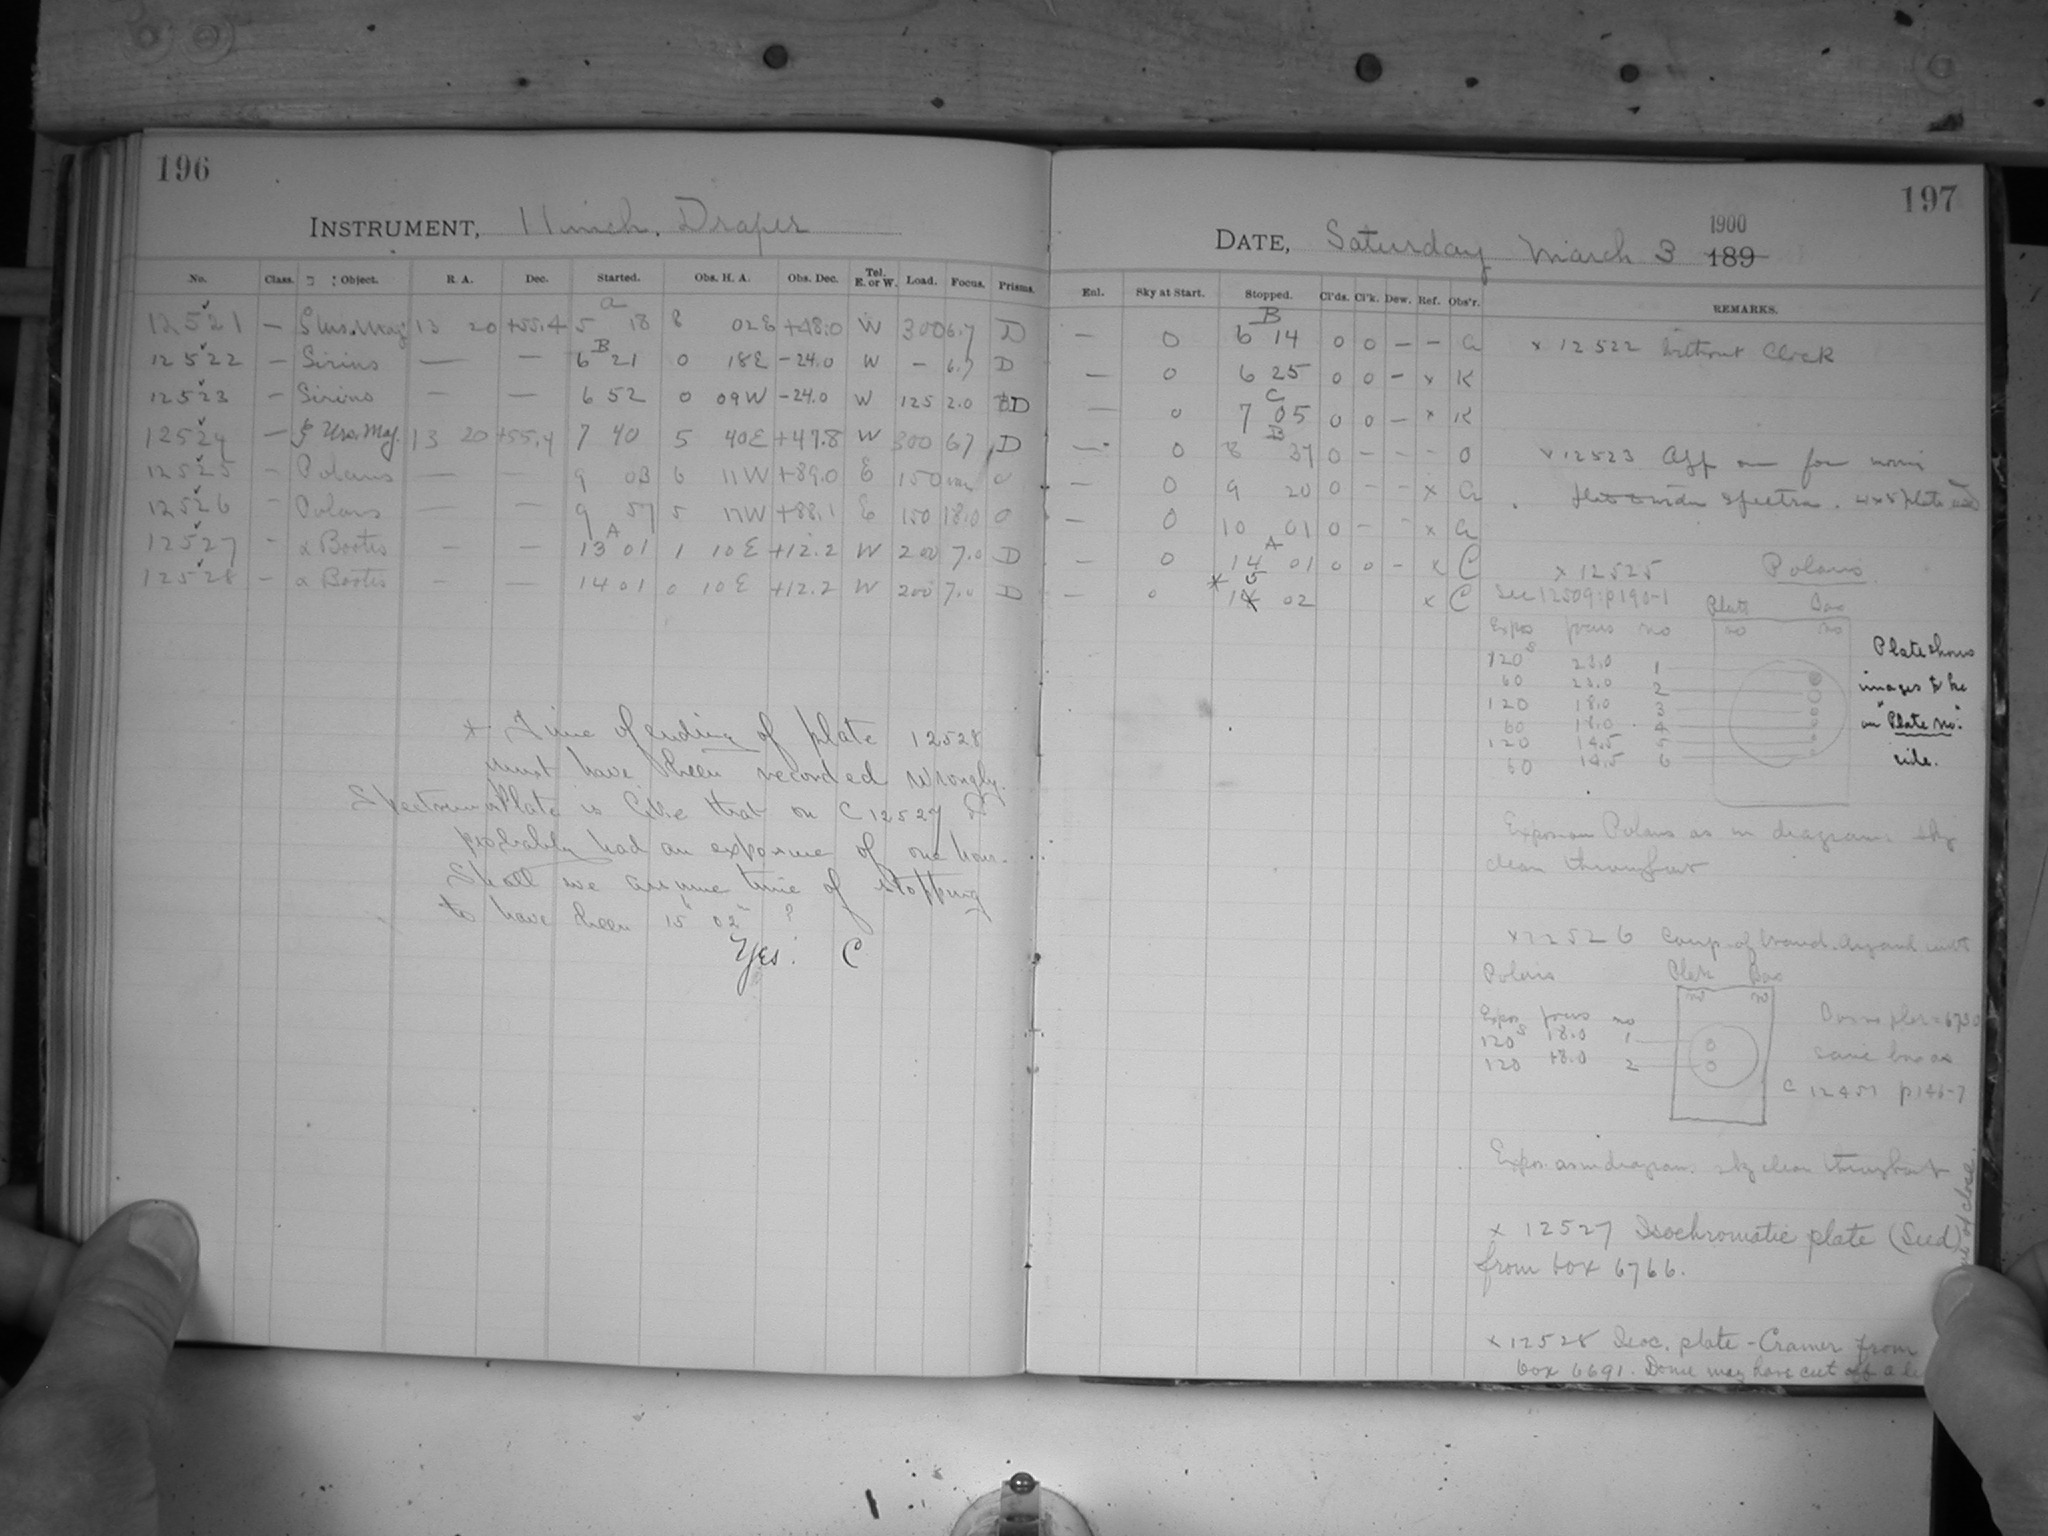 196
INSTRUMENT, 11 inch. Draper
No. Class. Object. R. A. Dec. Started. Obs. H. A. Obs. Dec. Tel. E. or W. Load. Focus. Prisms.
12521 — Urs. Maj. 13 20 +55.4 5 18 02E +48.0 W 300 6.7 D
12522 — Sirius — — 6 21 0 18E -24.0 W — 6.7 D
12523 — Sirius — — 6 52 0 09W -24.0 W 125 2.0 D
12524 — ζ Urs. Maj. 13 20 +55.4 7 40 5 40E +47.8 W 300 67 D
12525 - Polaris — — 9 03 6 11W +89.0 E 150 0
12526 - Polaris — — 9 57 5 17W +88.1 E 150 18.0 0
12527 - α Bootis - — 13 01 1 10E +12.2 W 200 7.0 D
12528 — α Bootis - — 14 01 0 10E +12.2 W 200 7.0 D
* Time of ending of plate 12528
must have been recorded wrongly.
Spectrum Plate is like that on C 12527 &
probably had an exposure of one hour.
Shall we assume time of stopping
to have been 15h 02m ?
Yes. C
197
1900
DATE, Saturday March 3 189
Enl. Sky at Start. Stopped. Cl'ds. Cl'k. Dew. Ref. Obs'r. REMARKS.
— 0 6 14 0 0 — — a
— 0 6 25 0 0 - x K
— 0 7 05 0 0 — x K
— 0 8 37 0 - - - 0
— 0 9 20 0 - - x a
— 0 10 01 0 - - x a
— 0 14 01 0 0 - x C
— 0 * 15 02 x C
x 12522 Without Clock
x 12523
spectra. 4x5 plate used
x 12525 Polaris
See 12509: p190-1 Plate Box
Expos focus no no no
120s 23.0 1
60 23.0 2
120 18.0 3
60 18.0 4
120 14.5 5
60 14.5 6
Plate shows
images to be
on "Plate no."
side.
Expos. on Polaris as in diagram. sky
clear throughout
x 12526 Comp. of
Polaris Plate Box
no no
Expos. focus no
120s 18.0 1
120 18.0 2
same box as
C 12457 p146-7
Expos. as in diagram. sky clear throughout
x 12527 Isochromatic plate (Seed)
from box 6766.
x 12528 Isoc. plate - Cramer from
box 6691. Dome may have cut off a
at close.